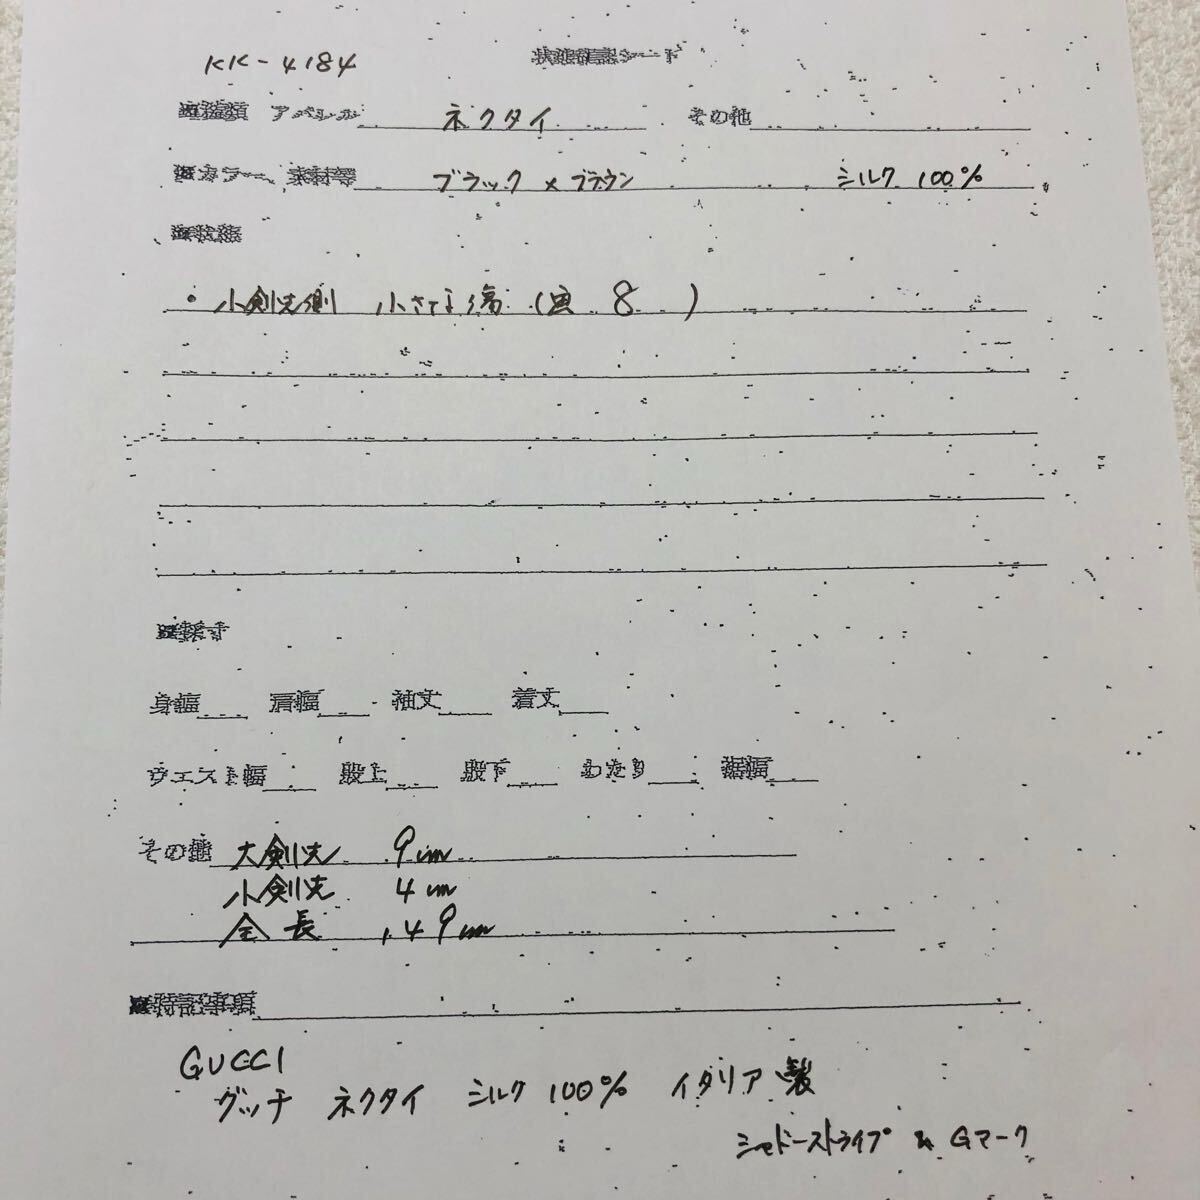 KK-4184 状態確認シート
■種類 アパレル ネクタイ その他
■カラー、素材等 ブラック×ブラウン シルク 100%
■状態
・小剣先側 小さな傷 (8)
■採寸
身幅 肩幅 袖丈 着丈
ウエスト幅 股上 股下 わたり 裾幅
その他 大剣先 9cm
小剣先 4cm
全長 149cm
■特記事項
GUCCI
グッチ ネクタイ シルク 100% イタリア製
シャドーストライプ & Gマーク